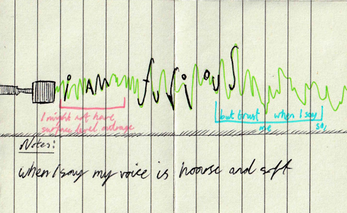 i AM FURiOUS
I might not have
surface level outrage
but trust me when I say so,
Notes:
when I say my voice is hoarse and soft